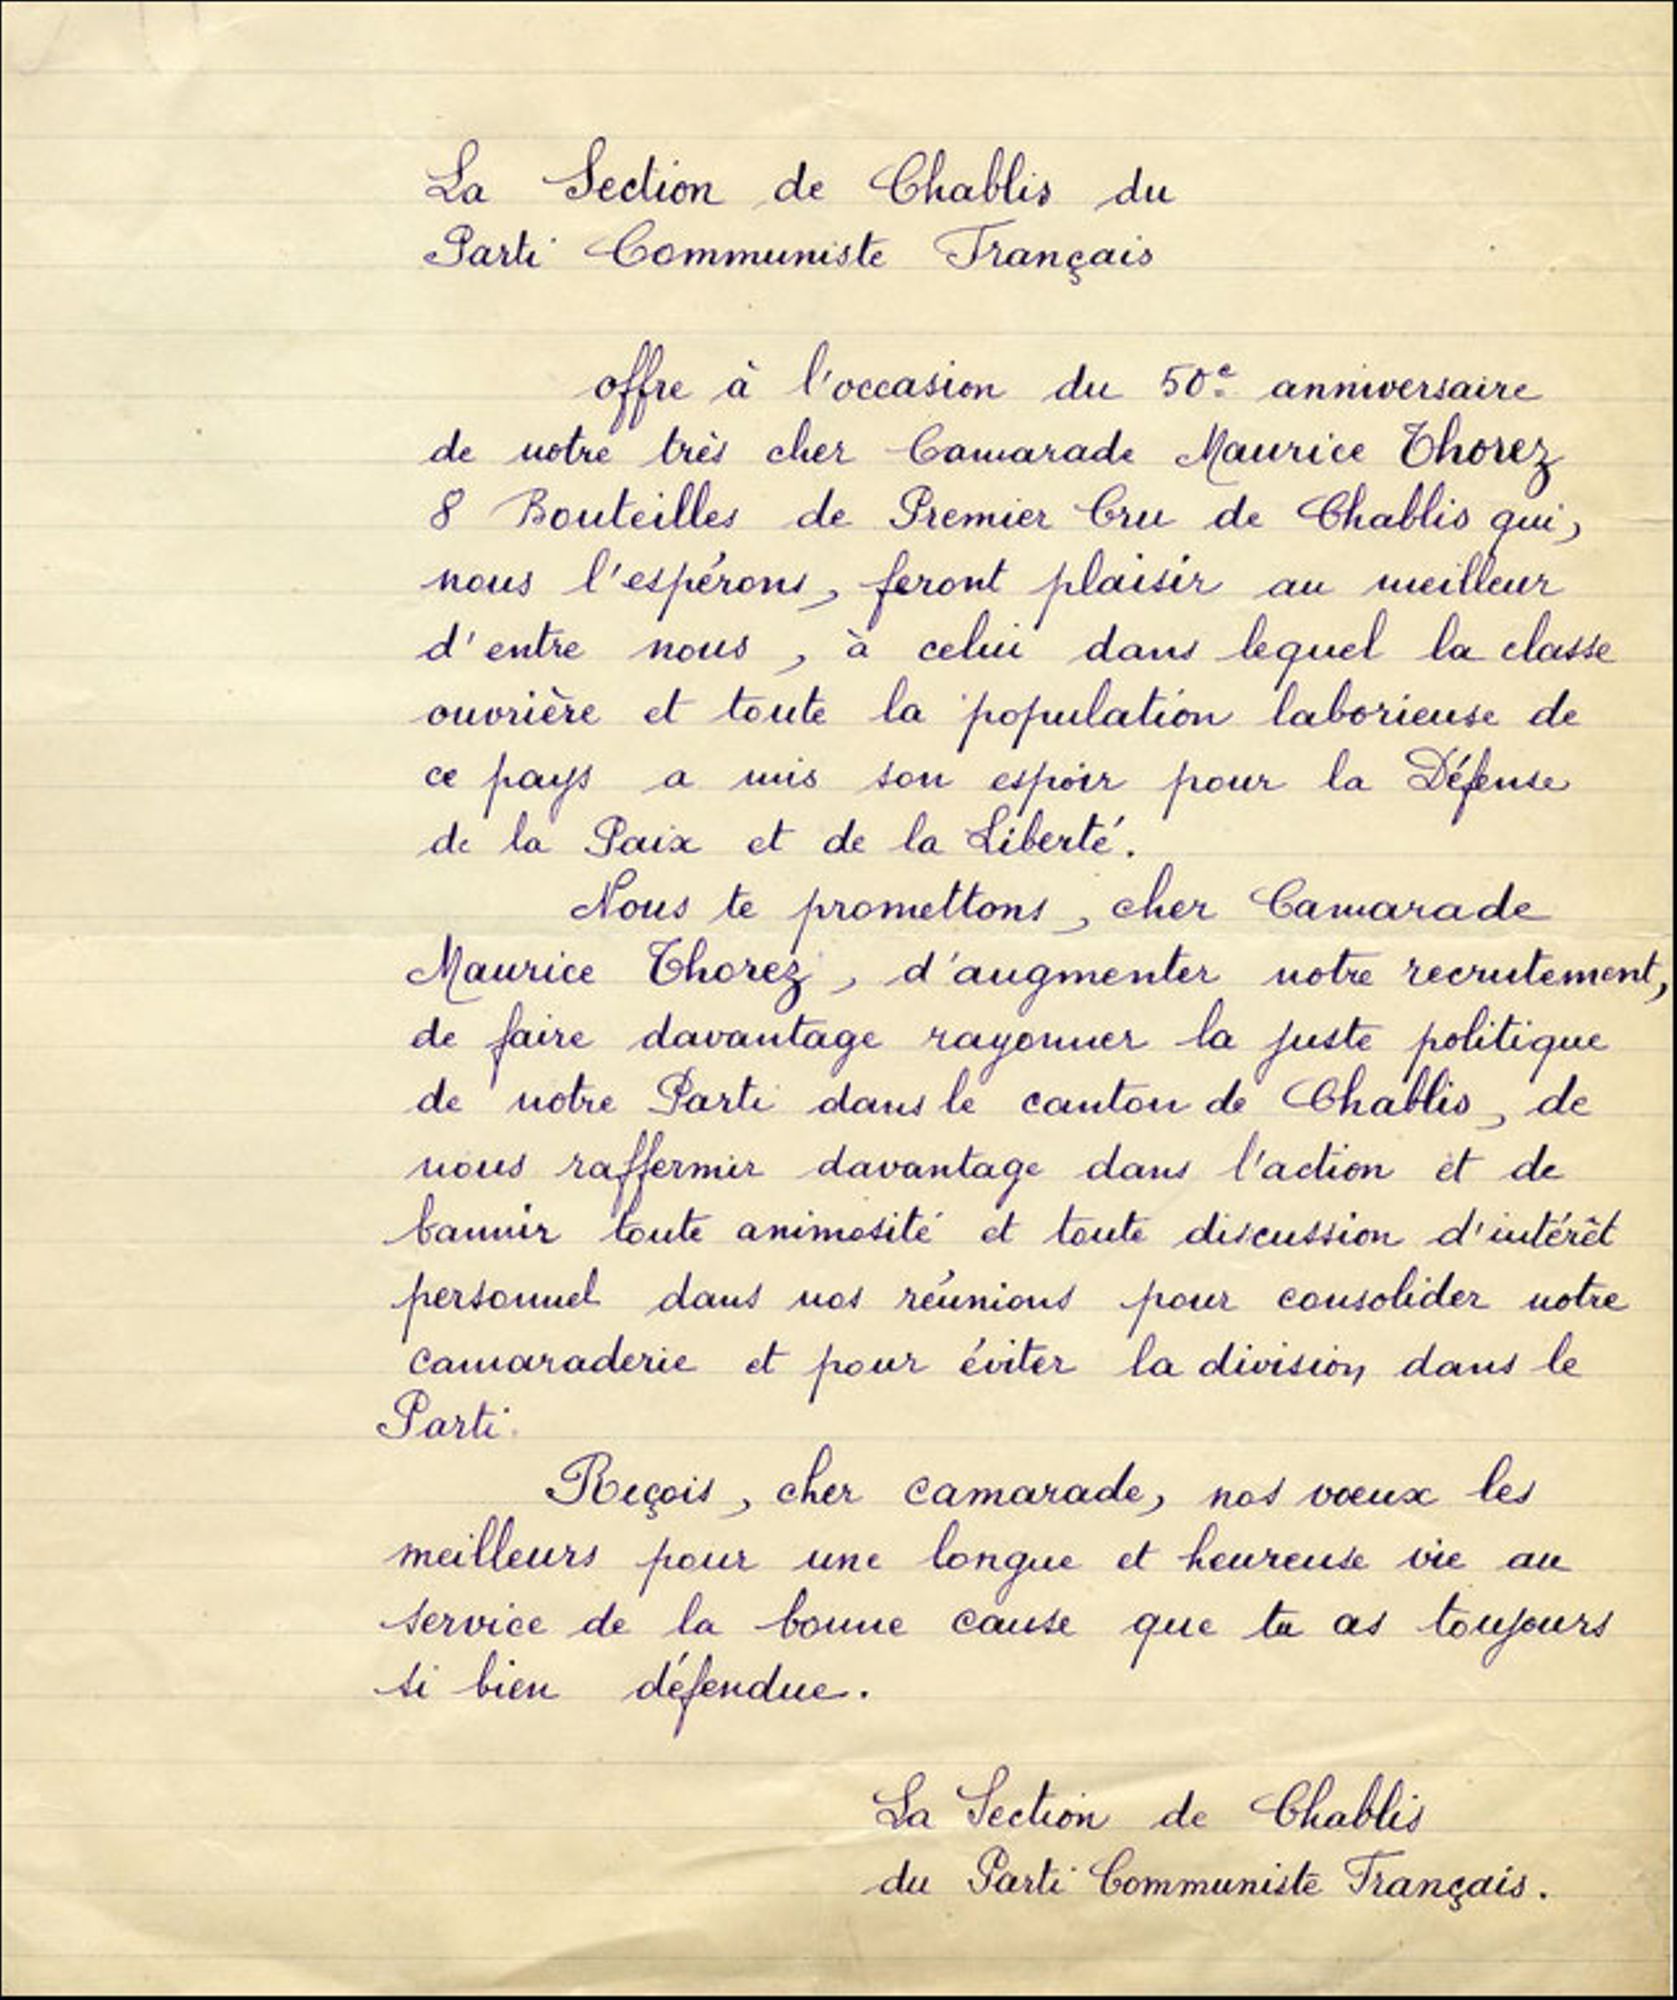 La Section de Chablis du
Parti Communiste Français
offre à l'occasion du 50e anniversaire
de notre très cher Camarade Maurice Thorez
8 Bouteilles de Premier Cru de Chablis qui,
nous l'espérons, feront plaisir au meilleur
d'entre nous, à celui dans lequel la classe
ouvrière et toute la population laborieuse de
ce pays a mis son espoir pour la Défense
de la Paix et de la Liberté.
Nous te promettons, cher Camarade
Maurice Thorez, d'augmenter notre recrutement,
de faire davantage rayonner la juste politique
de notre Parti dans le canton de Chablis, de
nous raffermir davantage dans l'action et de
bannir toute animosité et toute discussion d'intérêt
personnel dans nos réunions pour consolider notre
camaraderie et pour éviter la division dans le
Parti.
Reçois, cher camarade, nos vœux les
meilleurs pour une longue et heureuse vie au
service de la bonne cause que tu as toujours
si bien défendue.
La Section de Chablis
du Parti Communiste Français.